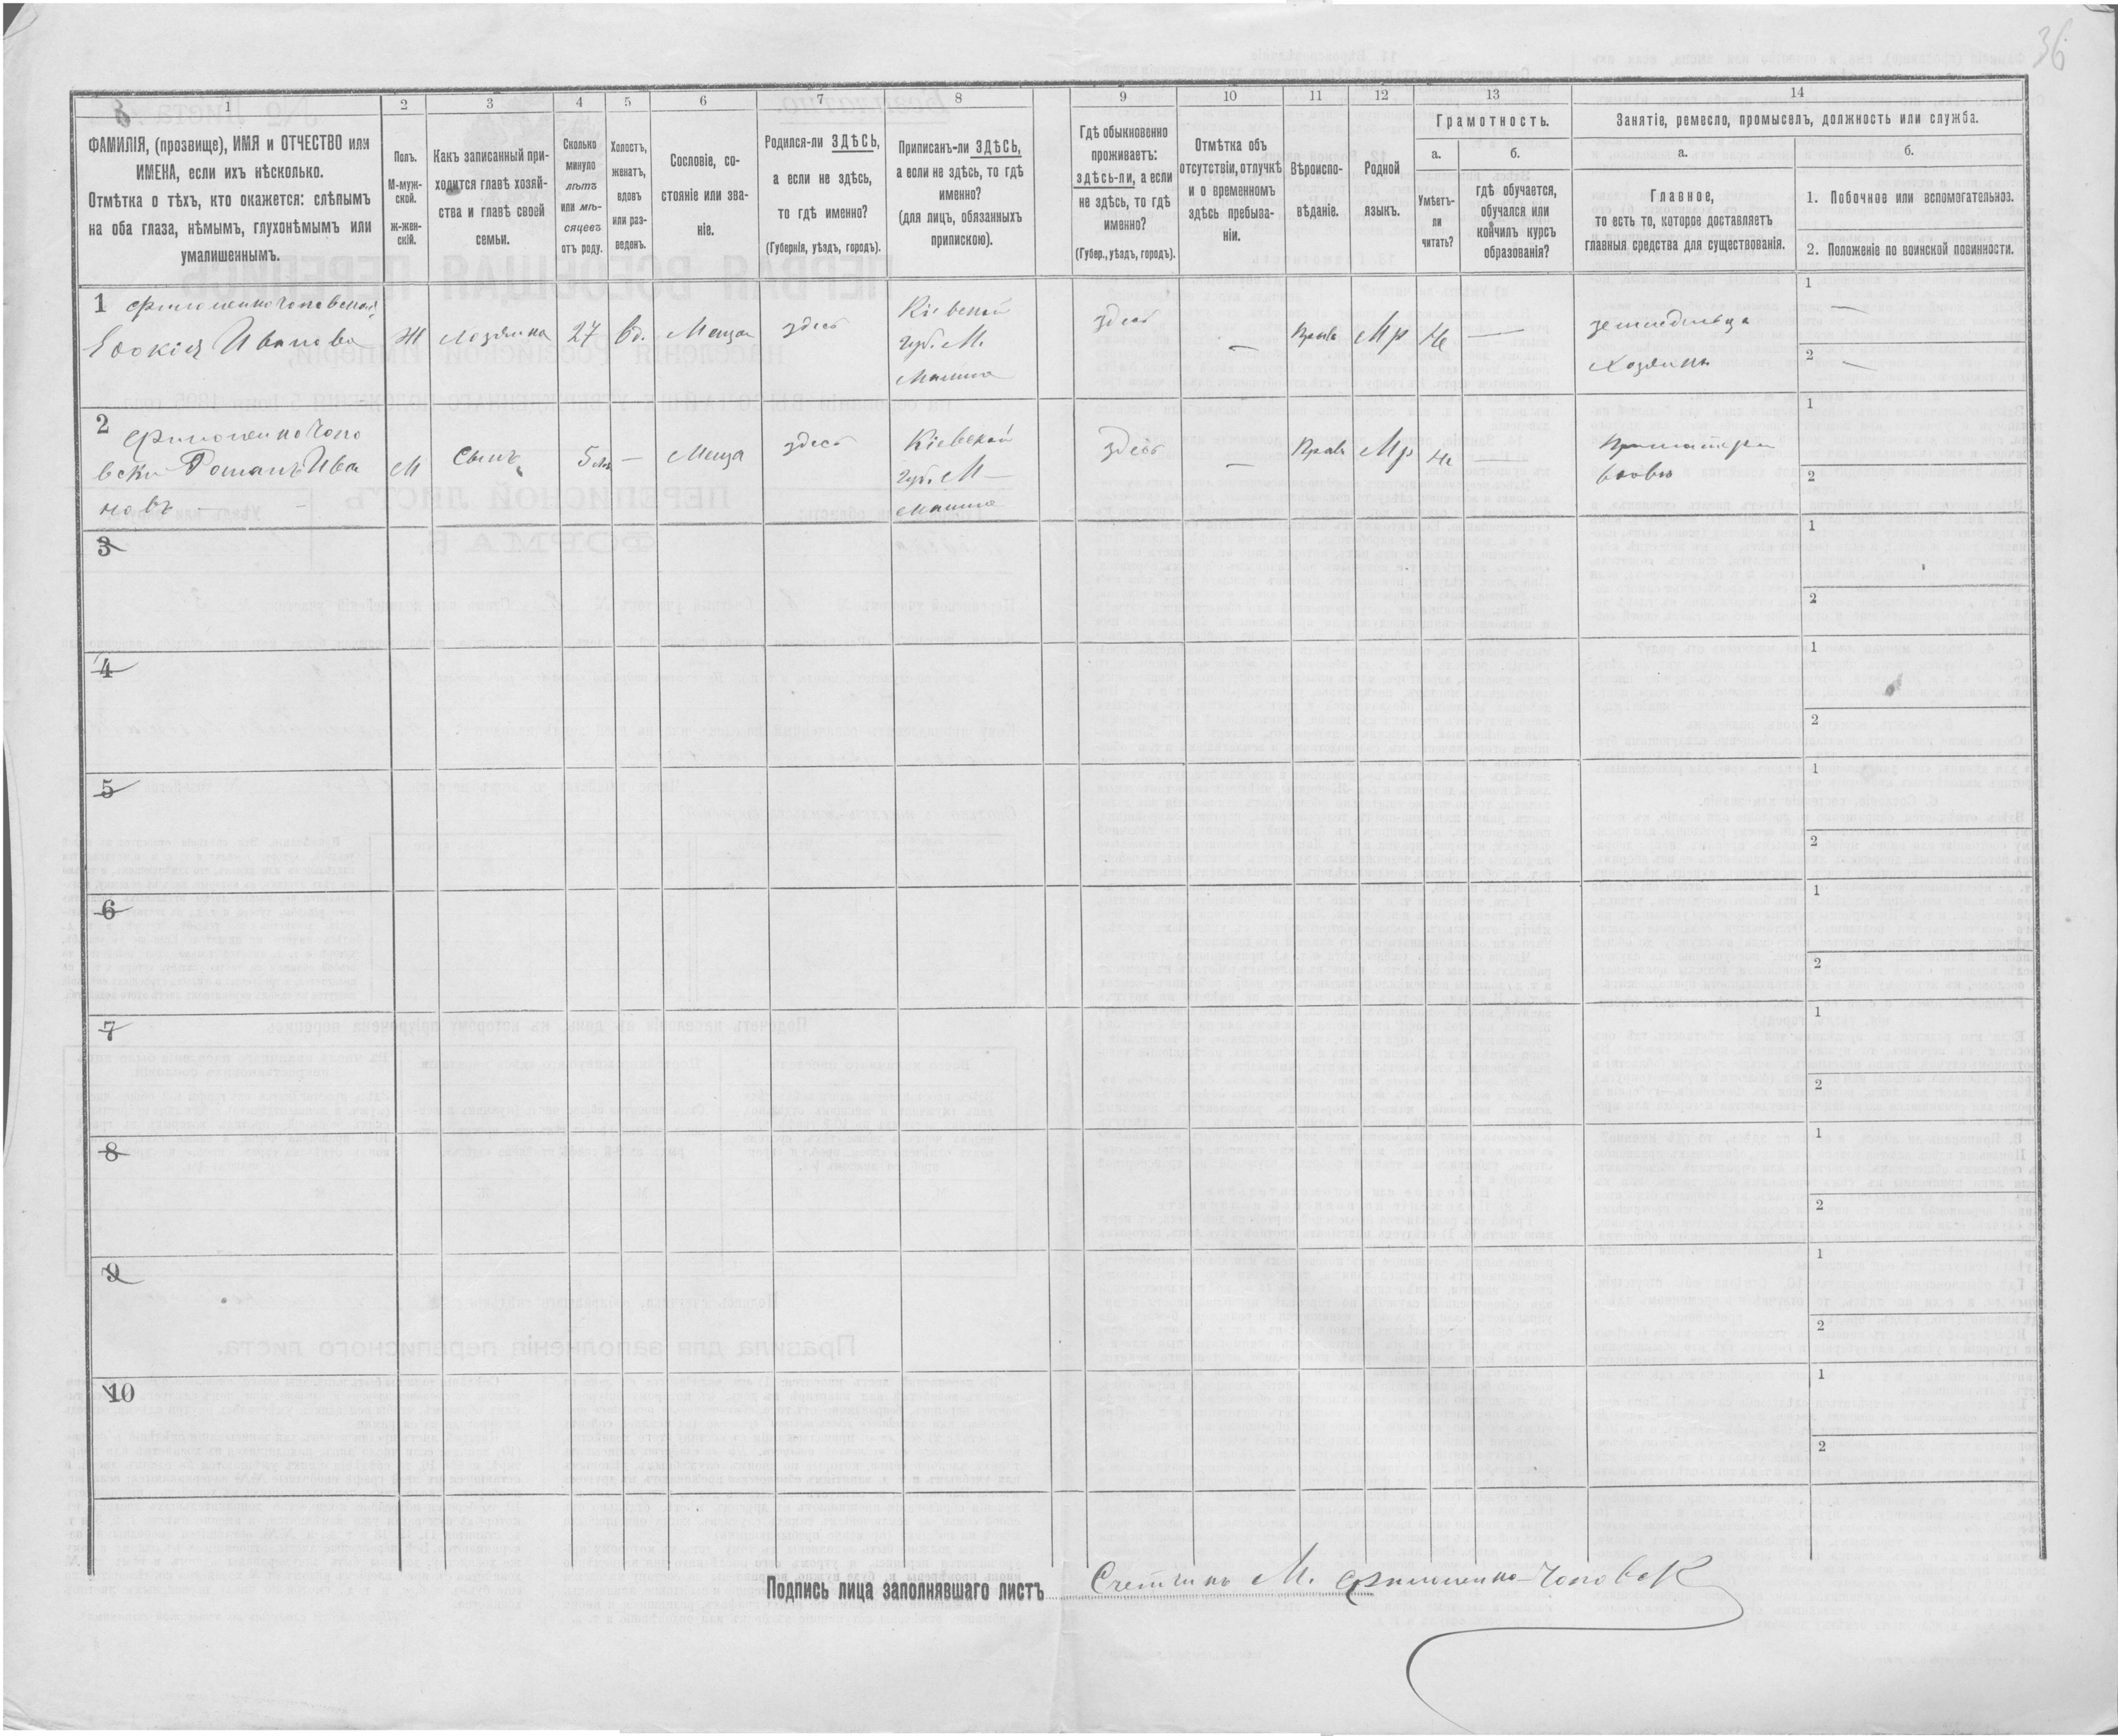 36
1
2
3
4
5
6
7
8
9
10
11
12
13
14
ФАМИЛІЯ, (прозвище), ИМЯ и ОТЧЕСТВО или
ИМЕНА, если ихъ нѣсколько.
Отмѣтка о тѣхъ, кто окажется: слѣпымъ
на оба глаза, нѣмымъ, глухонѣмымъ или
умалишеннымъ.
Полъ.
М-муж-
ской.
ж-жен-
скій.
Какъ записанный при-
ходится главѣ хозяй-
ства и главѣ своей
семьи.
Сколько
минуло
лѣтъ
или мѣ-
сяцевъ
отъ роду.
Холостъ,
женатъ,
вдовъ
или раз-
веденъ.
Сословіе, со-
стояніе или зва-
ніе.
Родился-ли ЗДѢСЬ,
а если не здѣсь,
то гдѣ именно?
(Губернія, уѣздъ, городъ).
Приписанъ-ли ЗДѢСЬ,
а если не здѣсь, то гдѣ
именно?
(для лицъ, обязанныхъ
припискою).
Гдѣ обыкновенно
проживаетъ:
здѣсь-ли, а если
не здѣсь, то гдѣ
именно?
(Губер., уѣздъ, городъ).
Отмѣтка объ
отсутствіи, отлучкѣ
и о временномъ
здѣсь пребыва-
ніи.
Вѣроиспо-
вѣданіе.
Родной
языкъ.
Грамотность.
а.
Умѣетъ-
ли
читать?
б.
гдѣ обучается,
обучался или
кончилъ курсъ
образованія?
Занятіе, ремесло, промыселъ, должность или служба.
а.
Главное,
то есть то, которое доставляетъ
главныя средства для существованія.
б.
1. Побочное или вспомогательноз.
2. Положеніе по воинской повинности.
1 Филоненкочоповская
Евокія Иванова
Ж
хозяика
27
вд.
Меща
здесь
Кіевской
губ. М.
Малина
здесь
—
Прав
Мр
Не
—
земледелица
хозяинъ
1 —
2 —
2 Филоненкочопо
вски Романъ Ива
новъ
М
Сынъ
5
—
Меща
здесь
Кіевской
губ. М
Малина
здесь
—
Прав
Мр
Не
—
Приматери
1
2
3
1
2
4
1
2
5
1
2
6
1
2
7
1
2
8
1
2
9
1
2
10
1
2
Подпись лица заполнявшаго листъ Счетчикъ М. Филоненко-Чоповск